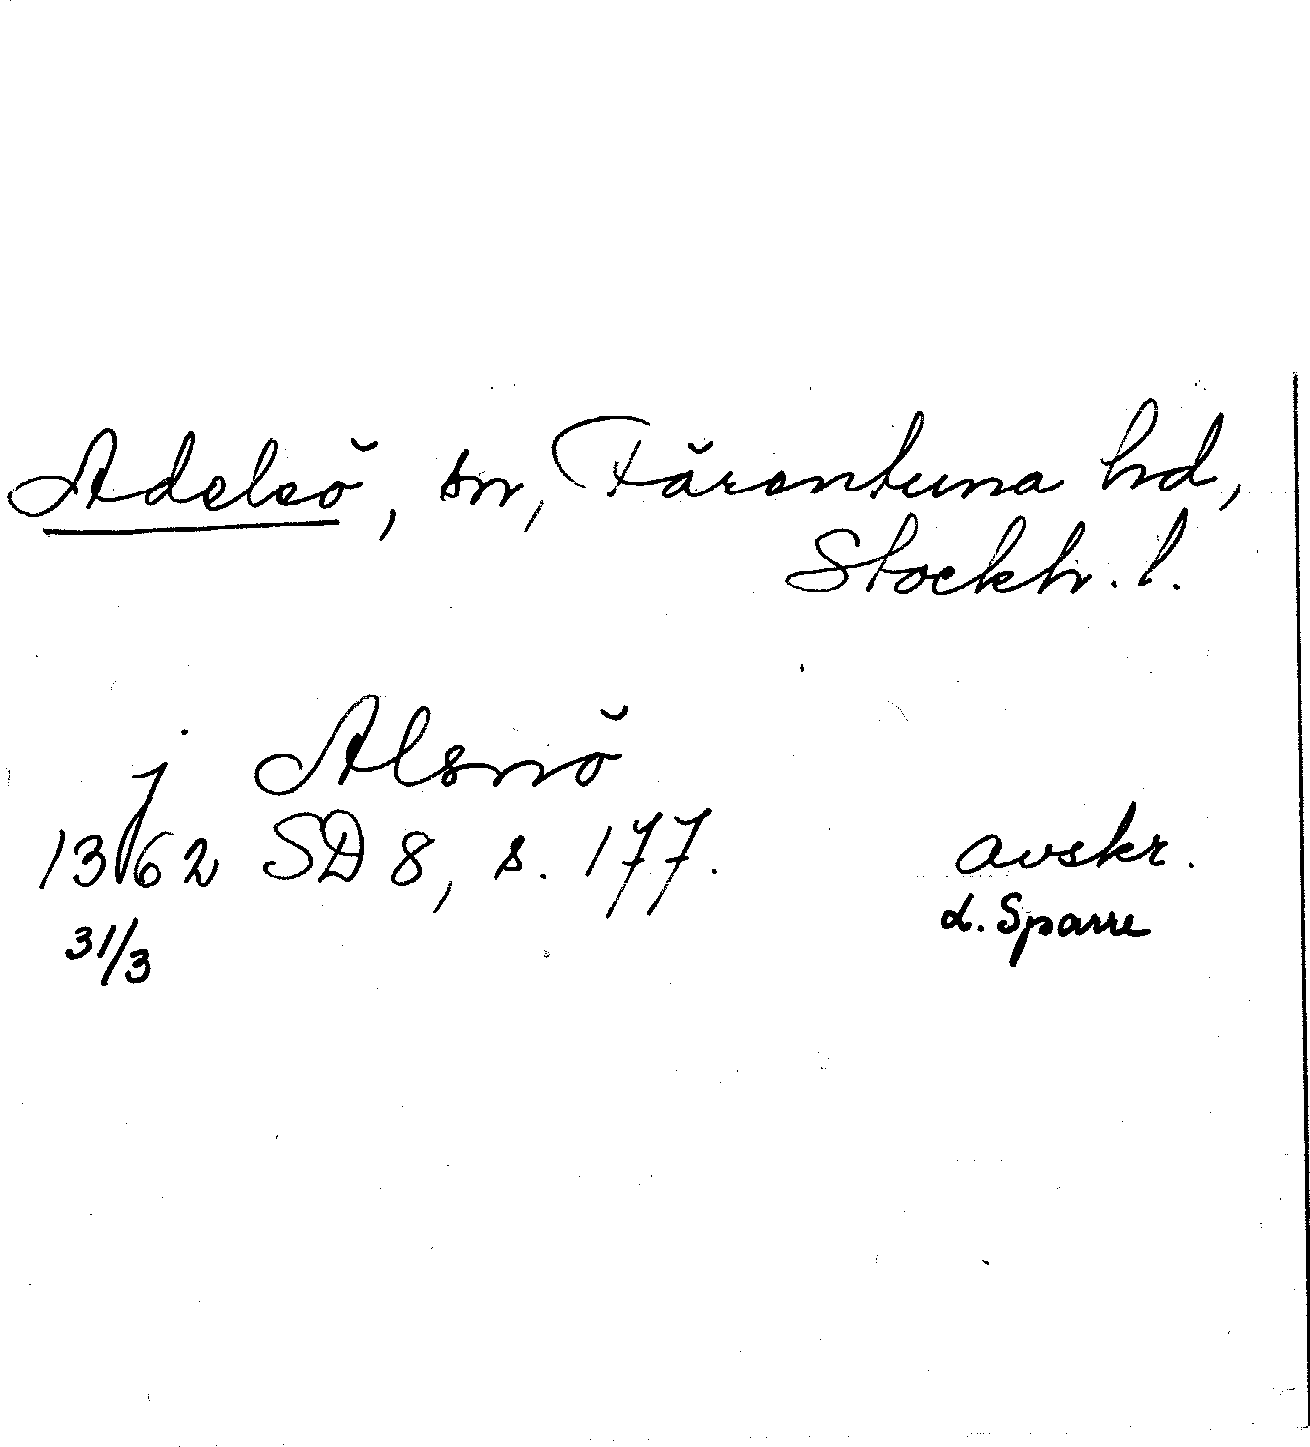 Adelsö, sn, Färentuna hd,
Stockh. l.
j Alsnö
1362 SD 8, s. 177. avskr.
31/3 d. Sparre